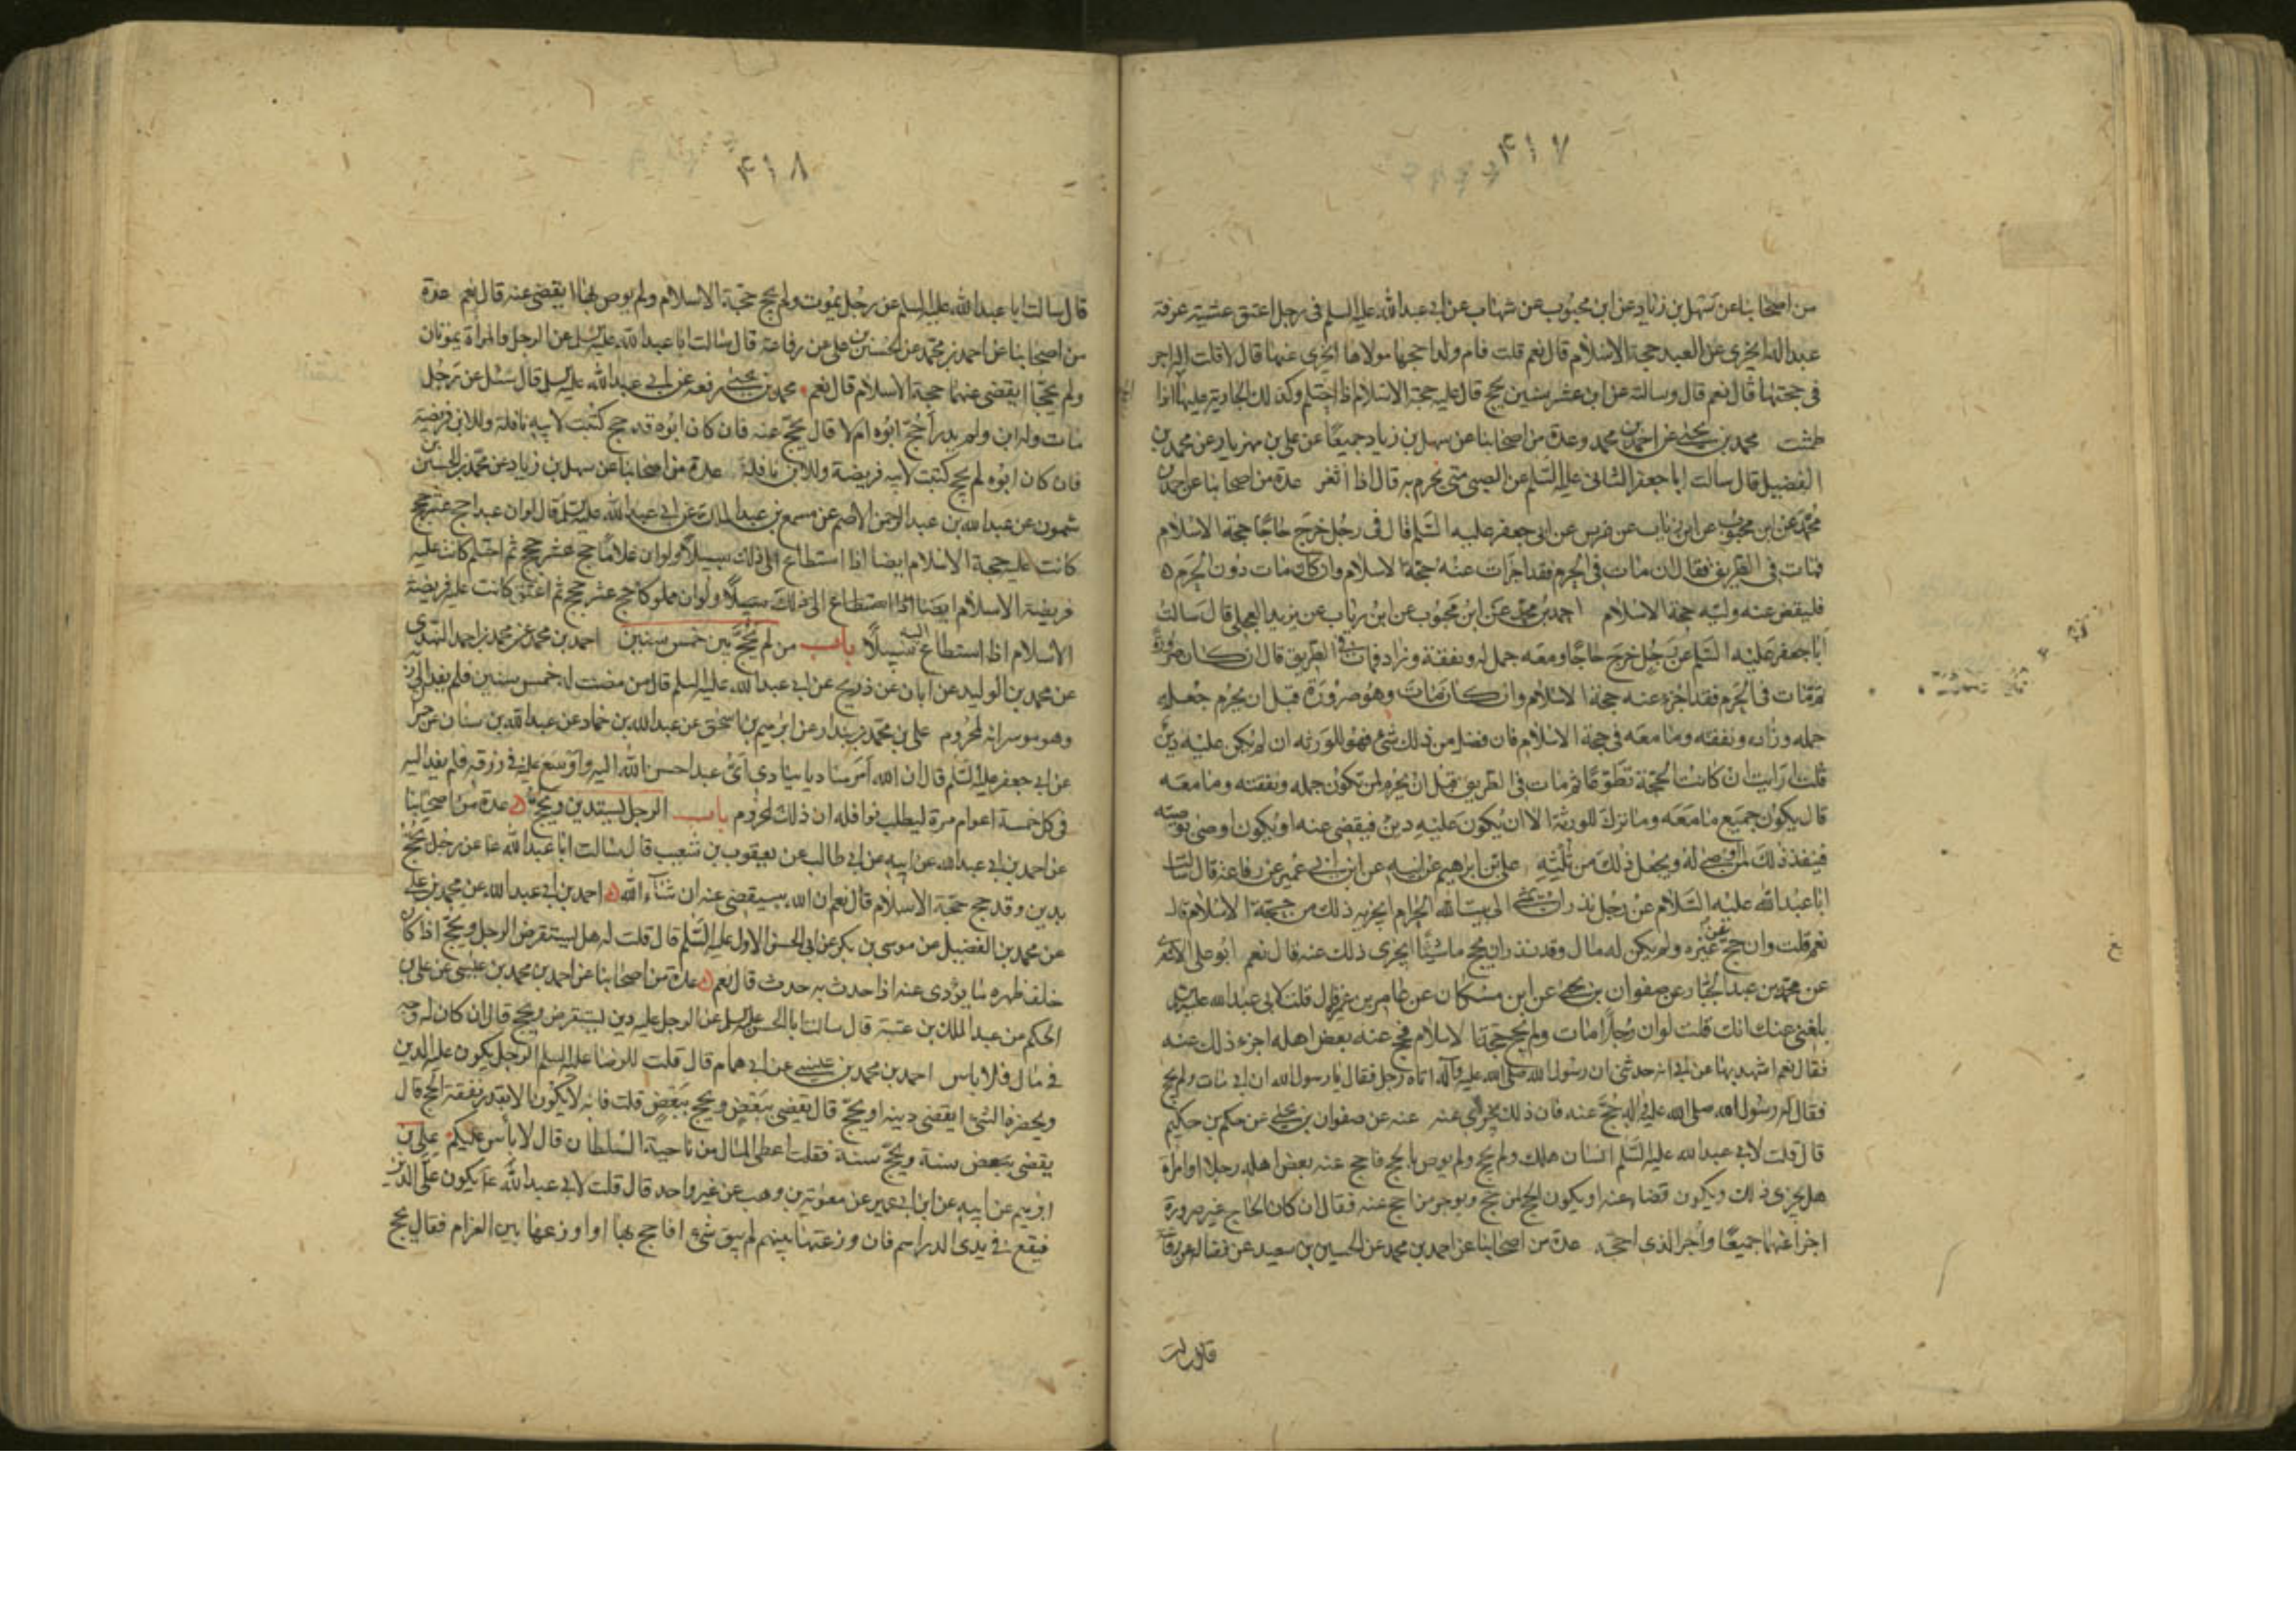 ۴۱۷
من اصحابنا عن سهل بن زياد عن ابن محبوب عن شهاب عن ابى عبد الله عليه السلم فى رجل اعتق عشية عرفة
عبدا له ايجزى عن العبد حجة الاسلام قال نعم قلت فام ولد احجها مولاها ايجزى عنها قال لا قلت اله اجر
فى حجتها قال نعم قال وسالته عن ابن عشر سنين يحج قال عليه حجة الاسلام اذا احتلم وكذلك الجارية عليها اذا
طمثت محمد بن يحيى عن احمد بن محمد وعدة من اصحابنا عن سهل بن زياد جميعًا عن على بن مهزيار عن محمد بن
الفضيل قال سالت ابا جعفر الثانى عليه السلم عن الصبى متى يحرم به قال اذا اثغر عدة من اصحابنا عن احمد بن
محمد عن ابن محبوب عن ابن رئاب عن ضريس عن ابى جعفر عليه السلم قال فى رجل خرج حاجًا حجة الاسلام
فمات فى الطريق فقال ان مات فى الحرم فقد اجزات عنه حجة الاسلام وان كان مات دون الحرم ه
فليقض عنه وليه حجة الاسلام احمد بن محمد عن ابن محبوب عن ابن رياب عن بريد العجلى قال سالت
ابا جعفر عليه السلم عن رجل خرج حاجًا ومعه جمل له ونفقة وزاد فمات فى الطريق قال ان كان صرورة
ثم مات فى الحرم فقد اجزء عنه حجة الاسلام وان كان مات وهو صرورة قبل ان يحرم جعل
جمله وزاده ونفقته وما معه فى حجة الاسلام فان فضل من ذلك شئ فهو للورثه ان لم يكن عليه دين
قلت ارايت ان كانت الحجة تطوعًا ثم مات فى الطريق قبل ان يحرم لمن تكون جمله ونفقته وما معه
قال يكون جميع ما معه وما ترك للورثة الا ان يكون عليه دين فيقضى عنه او يكون اوصى بوصيته
فينفذ ذلك لمن اوصى له ويجعل ذلك من ثلثه على بن ابرهيم عن ابيه عن ابن ابى عمير عن رفاعة قال سالت
ابا عبد الله عليه السلام عن رجل نذر ان يمشى الى بيت الله الحرام ايجزيه ذلك من حجة الاسلام قال
نعم قلت وان حج عن غيره ولم يكن له مال وقد نذر ان يحج ماشيًا ايجزى ذلك عنه قال نعم ابو على الاشعرى
عن محمد بن عبد الجبار عن صفوان بن يحيى عن ابن مسكان عن عامر بن عميرة قال قلت لابى عبد الله عليه السلم
بلغنى عنك انك قلت لو ان رجلا مات ولم يحج حجة الاسلام فحج عنه بعض اهله اجزء ذلك عنه
فقال نعم اشهد بها عن ابى انه حدثنى ان رسول الله صلى الله عليه وآله اتاه رجل فقال يا رسول الله ان ابى مات ولم يحج
فقال له رسول الله صلى الله عليه وآله حج عنه فان ذلك يجزى عنه عنه عن صفوان بن يحيى عن حكم بن حكيم
قال قلت لابى عبد الله عليه السلم انسان هلك ولم يحج ولم يوص بالحج فاحج عنه بعض اهله رجلا او امراة
هل يجزى ذلك ويكون قضاء عنه او يكون الحج لمن حج ويوجر من احج عنه فقال ان كان الحاج غير صرورة
اجزا عنهما جميعًا واجر الذى احجه عدة من اصحابنا عن احمد بن محمد عن الحسين بن سعيد عن فضالة عن رفاعة
قال سالت
۴۱۸
قال سالت ابا عبد الله عليه السلم عن رجل يموت ولم يحج حجة الاسلام ولم يوص بها ايقضى عنه قال نعم عدة
من اصحابنا عن احمد بن محمد عن الحسن بن على عن رفاعة قال سالت ابا عبد الله عليه السلم عن الرجل والمراة يموتان
ولم يحجا ايقضى عنهما حجة الاسلام قال نعم محمد بن يحيى رفعه عن ابى عبد الله عليه السلم قال سئل عن رجل
مات وله ابن ولم يدر احج ابوه ام لا قال يحج عنه فان كان ابوه قد حج كتبت لابيه نافلة وللابن فريضة
فان كان ابوه لم يحج كتبت لابيه فريضة وللابن نافلة عدة من اصحابنا عن سهل بن زياد عن محمد بن الحسن بن
شمون عن عبد الله بن عبد الرحمن الاصم عن مسمع بن عبد الملك عن ابى عبد الله عليه السلم قال لو ان عبدا حج عشر حجج
كانت عليه حجة الاسلام ايضا اذا استطاع الى ذلك سبيلا ولو ان غلامًا حج عشر حجج ثم احتلم كانت عليه
فريضة الاسلام ايضا اذا استطاع الى ذلك سبيلًا ولو ان مملوكا حج عشر حجج ثم اعتق كانت عليه فريضة
الاسلام اذا استطاع اليه سبيلًا باب من لم يحج بين خمس سنين احمد بن محمد عن محمد بن احمد النهدى
عن محمد بن الوليد عن ابان عن ذريح عن ابى عبد الله عليه السلم قال من مضت له خمس سنين فلم يفد الى ربه
وهو موسر انه لمحروم على بن محمد بن بندار عن ابرهيم بن اسحق عن عبد الله بن حماد عن عبد الله بن سنان عن حمران
عن ابى جعفر عليه السلم قال ان الله امر مناديا ينادى اى عبد احسن الله اليه واوسع عليه فى رزقه فلم يفد اليه
فى كل خمسة اعوام مرة ليطلب نوافله ان ذلك لمحروم باب الرجل يستدين ويحج ه عدة من اصحابنا
عن احمد بن ابى عبد الله عن ابيه عن ابى طالب عن يعقوب بن شعيب قال سالت ابا عبد الله ع عن رجل يحج
بدين وقد حج حجة الاسلام قال نعم ان الله سيقضى عنه ان شاء الله ه احمد بن ابى عبد الله عن محمد بن على
عن محمد بن الفضيل عن موسى بن بكر عن ابى الحسن الاول عليه السلم قال قلت له هل يستقرض الرجل ويحج اذا كان
خلف ظهره ما يؤدى عنه اذا حدث به حدث قال نعم ه عدة من اصحابنا عن احمد بن محمد بن عيسى عن على بن
الحكم عن عبد الملك بن عتبة قال سالت ابا الحسن عليه السلم عن الرجل عليه دين يستقرض ويحج قال ان كان له وجه
فى مال فلا باس احمد بن محمد بن عيسى عن ابى همام قال قلت للرضا عليه السلم الرجل يكون عليه الدين
ويحضره الشئ ايقضى دينه او يحج قال يقضى ببعض ويحج ببعض قلت فانه لا يكون الا بقدر نفقة الحج قال
يقضى ببعض سنة ويحج سنة فقلت اعطى المال من ناحية السلطان قال لا باس عليكم على بن
ابرهيم عن ابيه عن ابن ابى عمير عن معوية بن وهب عن غير واحد قال قلت لابى عبد الله ع يكون على الدين
فيقع فى يدى الدراهم فان وزعتها بينهم لم يبق شئ افاحج بها او اوزعها بين الغرام فقال يحج